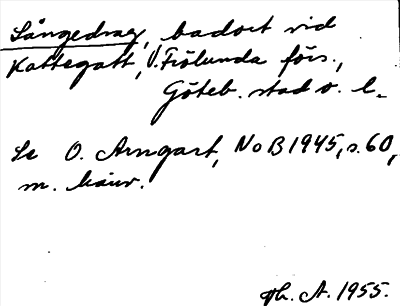 Långedrag, badort vid
Kattegatt, V. Frölunda förs.,
Göteb. stad o. l.
Se O. Arngart, NoB 1945, s. 60,
m. hänv.
Th. A. 1955.